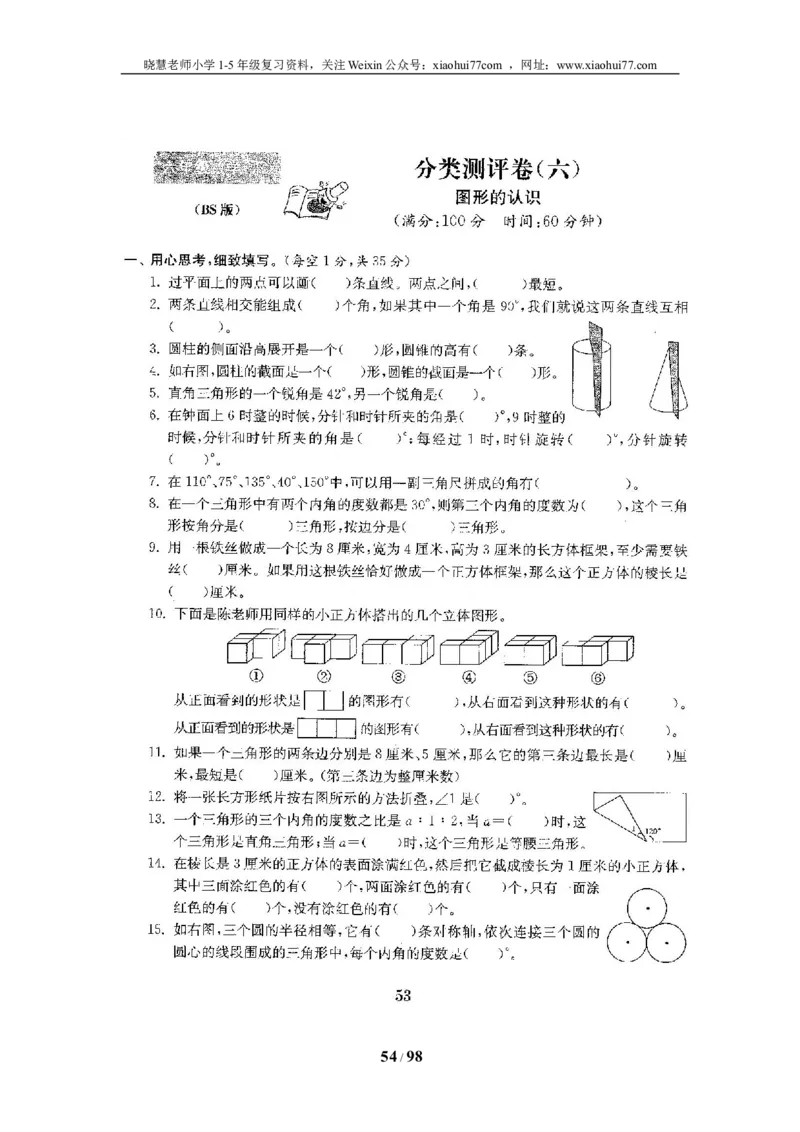 晓慧老师小学1-5年级复习资料，关注Weixin公众号：xiaohui77com ，网址：www.xiaohui77.com
分类测评卷(六)
(BS版)
图形的认识
(满分:100分 时间:60分钟)
一、用心思考,细致填写。(每空1分,共35分)
1. 过平面上的两点可以画( )条直线。两点之间,( )最短。
2. 两条直线相交能组成( )个角,如果其中一个角是90°,我们就说这两条直线互相
( )。
3. 圆柱的侧面沿高展开是一个( )形,圆锥的高有( )条。
4. 如右图,圆柱的截面是一个( )形,圆锥的截面是一个( )形。
5. 直角三角形的一个锐角是42°,另一个锐角是( )。
6. 在钟面上6时整的时候,分针和时针所夹的角是( )°,9时整的
时候,分针和时针所夹的角是( )°;每经过1时,时针旋转( )°,分针旋转
( )°。
7. 在110°、75°、135°、40°、150°中,可以用一副三角尺拼成的角有( )。
8. 在一个三角形中有两个内角的度数都是30°,则第三个内角的度数为( ),这个三角
形按角分是( )三角形,按边分是( )三角形。
9. 用一根铁丝做成一个长为8厘米,宽为4厘米,高为3厘米的长方体框架,至少需要铁
丝( )厘米。如果用这根铁丝恰好做成一个正方体框架,那么这个正方体的棱长是
( )厘米。
10. 下面是陈老师用同样的小正方体搭出的几个立体图形。
① ② ③ ④ ⑤ ⑥
从正面看到的形状是 的图形有( ),从右面看到这种形状的有( )。
从正面看到的形状是 的图形有( ),从右面看到这种形状的有( )。
11. 如果一个三角形的两条边分别是8厘米、5厘米,那么它的第三条边最长是( )厘
米,最短是( )厘米。(第三条边为整厘米数)
12. 将一张长方形纸片按右图所示的方法折叠,∠1是( )°。
1 120°
13. 一个三角形的三个内角的度数之比是a∶1∶2,当a=( )时,这
个三角形是直角三角形;当a=( )时,这个三角形是等腰三角形。
14. 在棱长是3厘米的正方体的表面涂满红色,然后把它截成棱长为1厘米的小正方体,
其中三面涂红色的有( )个,两面涂红色的有( )个,只有一面涂
红色的有( )个,没有涂红色的有( )个。
15. 如右图,三个圆的半径相等,它有( )条对称轴,依次连接三个圆的
圆心的线段围成的三角形中,每个内角的度数是( )°。
53
54 / 98